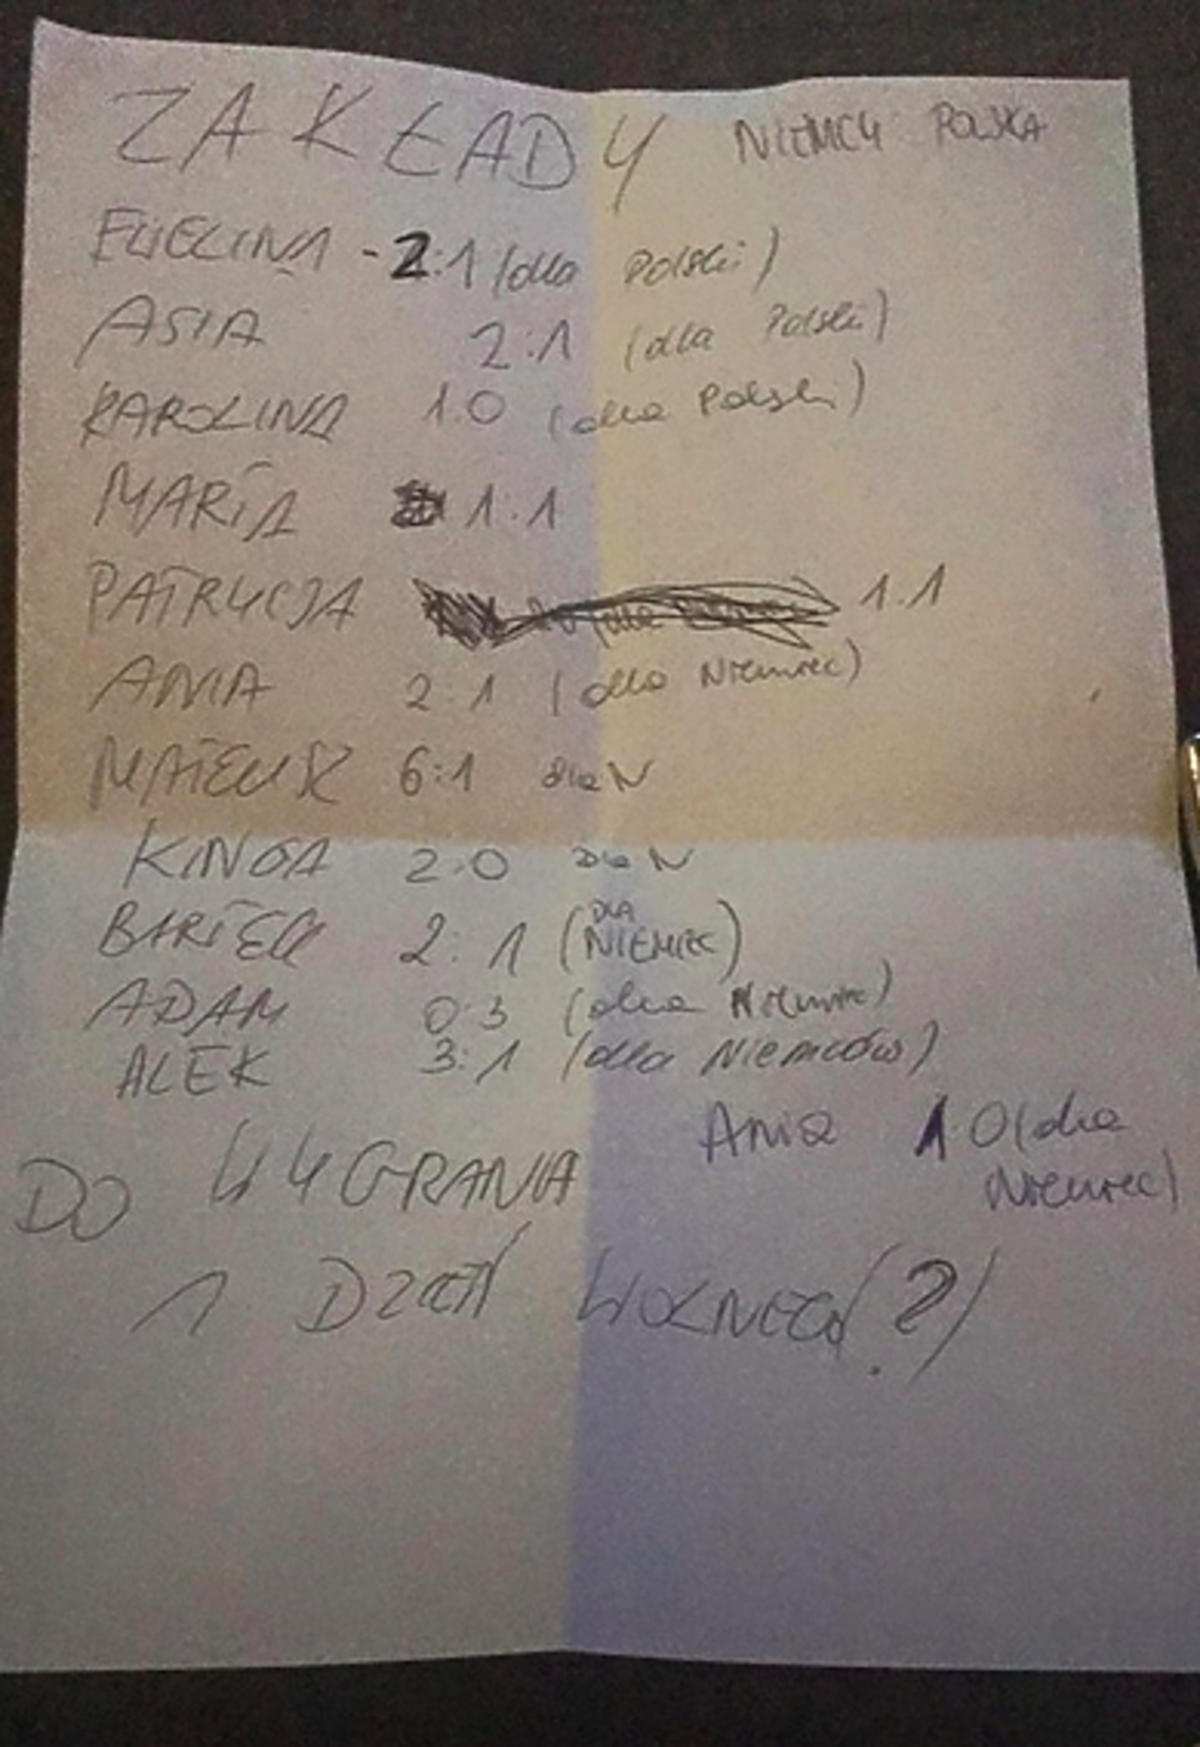 ZAKŁADY NIEMCY POLSKA
EWELINA - 2:1 (dla Polski)
ASIA 2:1 (dla Polski)
KAROLINA 1:0 (dla Polski)
MARIA 1:1
PATRYCJA 1:1
ANIA 2:1 (dla Niemiec)
MATEUSZ 6:1 dla N
KINGA 2:0 Dla N
BARTEK 2:1 (DLA NIEMIEC)
ADAM 0:3 (dla Niemiec)
ALEK 3:1 (dla Niemców)
Ania 1:0 (dla
Niemiec)
DO WYGRANIA
1 DZIEŃ WOLNEGO (?)